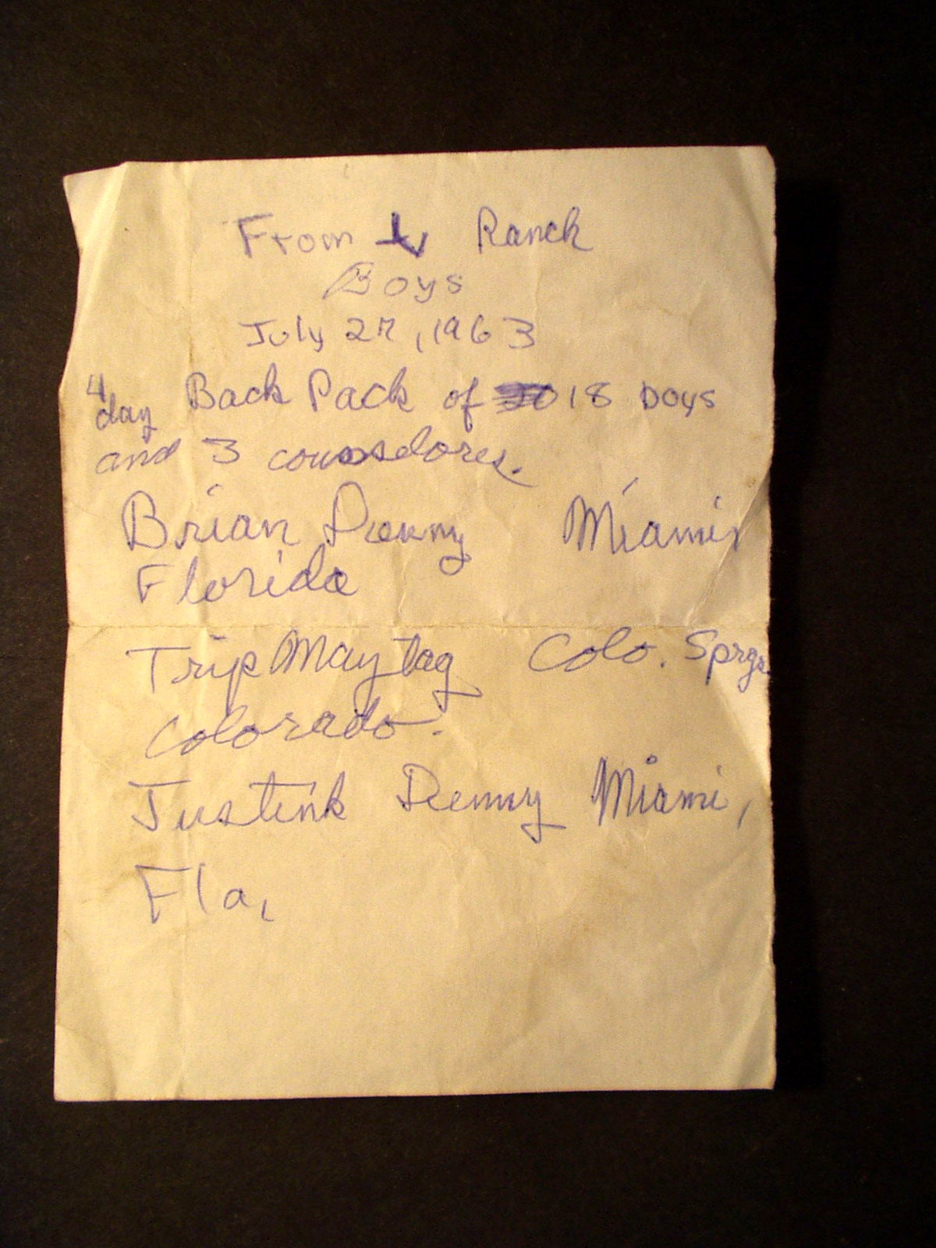 From Ranch
Boys
July 27, 1963
4 day Back Pack of 18 boys
and 3 counselores.
Brian Denny Miami
Florida
Trip Maytag Colo. Sprgs
Colorado.
Denny Miami,
Fla,